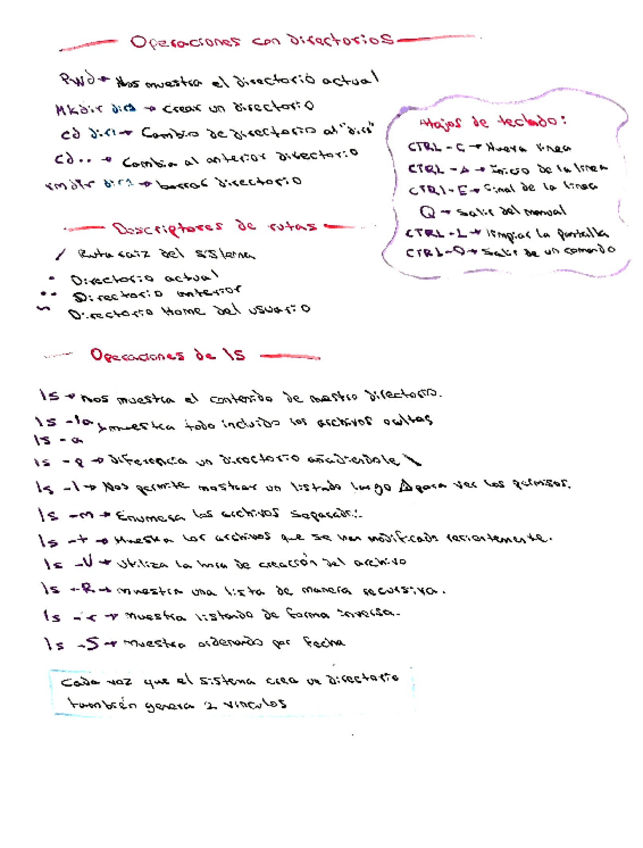 Operaciones con directorios
Pwd → Nos muestra el directorio actual
Mkdir dir1 → crear un directorio
cd dir1 → Cambio de directorio al "dir1"
cd .. → Cambia al anterior directorio
rmdir dir1 → borrar directorio
Atajos de teclado:
CTRL - C → Nueva linea
CTRL - A → Inicio de la linea
CTRL - E → Final de la linea
Q → Salir del manual
CTRL - L → limpiar la pantalla
CTRL - D → Salir de un comando
Descriptores de rutas
/ Ruta raiz del sistema
. Directorio actual
.. Directorio anterior
~ Directorio Home del usuario
Operaciones de ls
ls → nos muestra el contenido de nuestro directorio.
ls -la } muestra todo incluido los archivos ocultos
ls - a
ls - p → diferencia un directorio añadiendole \
ls - l → Nos permite mostrar un listado largo para ver los permisos.
ls -m → Enumera los archivos separado:
ls -t → Muestra los archivos que se han modificado recientemente.
ls -U → Utiliza la hora de creacción del archivo
ls -R → muestra una lista de manera recursiva.
ls -r → Muestra listando de forma inversa.
ls -S → muestra ordenando por fecha
Cada vez que el sistema crea un directorio
también genera 2 vinculos